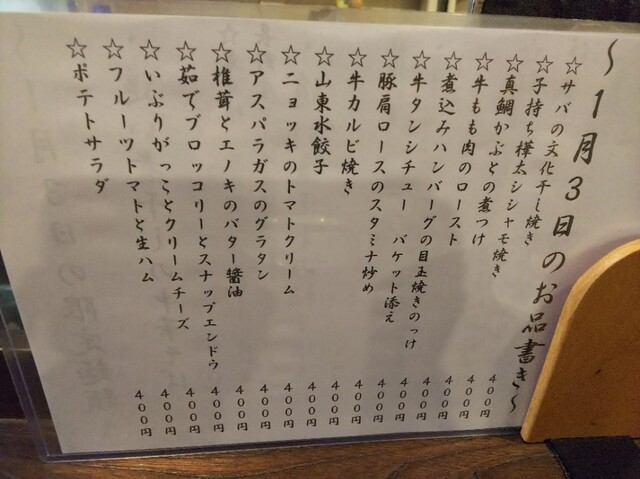 ～１月３日のお品書き～
☆サバの文化干し焼き ４００円
☆子持ち樺太シシャモ焼き ４００円
☆真鯛かぶとの煮つけ ４００円
☆牛もも肉のロースト ４００円
☆煮込みハンバーグの目玉焼きのっけ ４００円
☆牛タンシチュー　バケット添え ４００円
☆豚肩ロースのスタミナ炒め ４００円
☆牛カルビ焼き ４００円
☆山東水餃子 ４００円
☆ニョッキのトマトクリーム ４００円
☆アスパラガスのグラタン ４００円
☆椎茸とエノキのバター醤油 ４００円
☆茹でブロッコリーとスナップエンドウ ４００円
☆いぶりがっことクリームチーズ ４００円
☆フルーツトマトと生ハム ４００円
☆ポテトサラダ ４００円